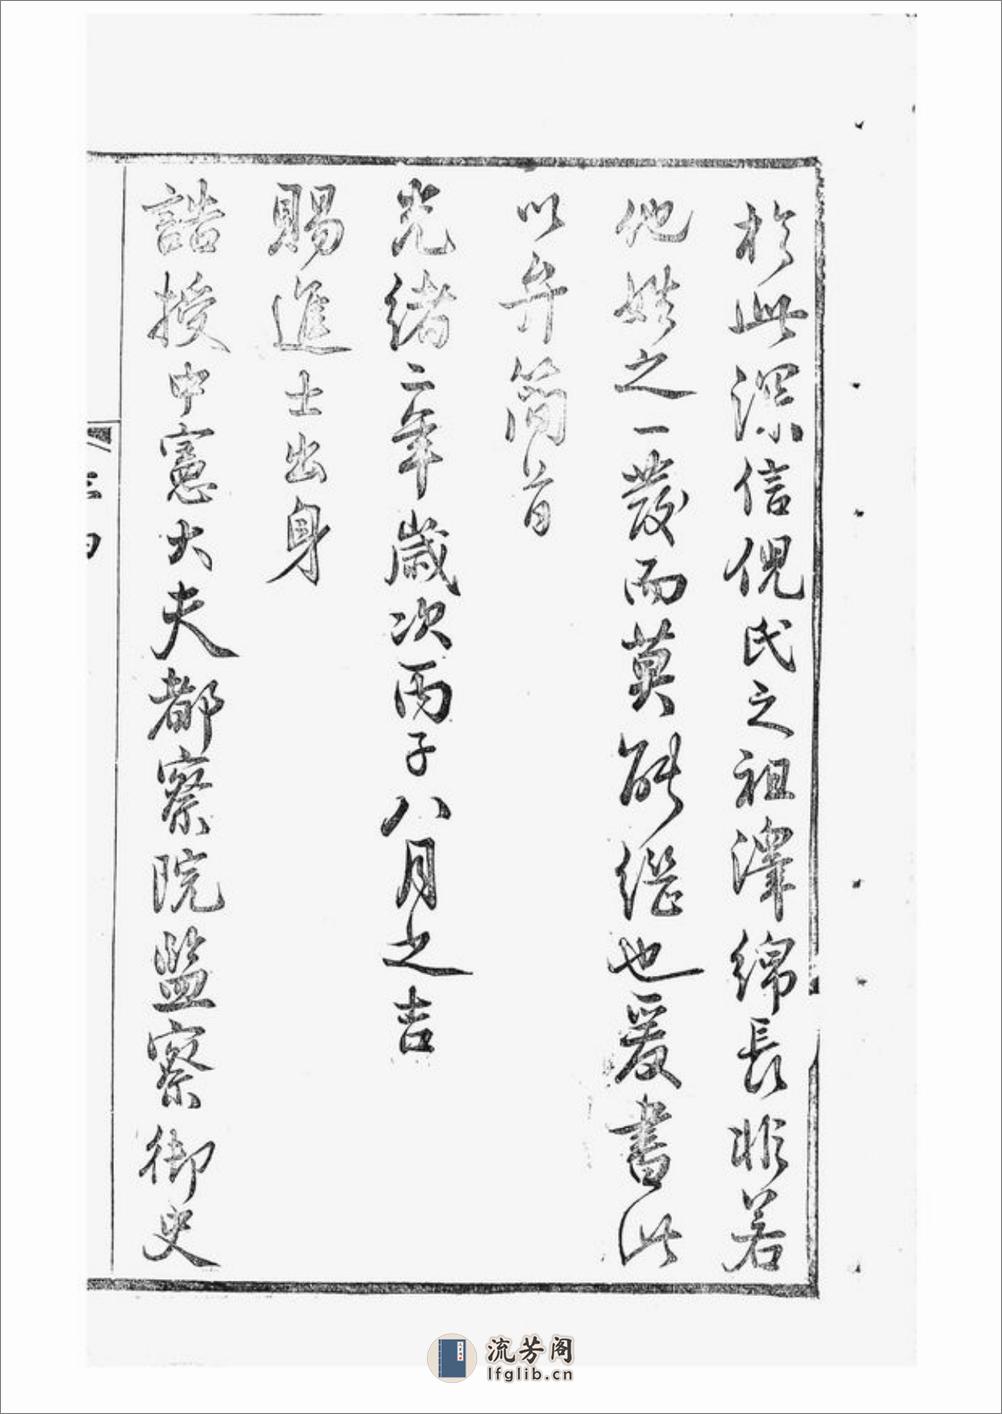 於此深信倪氏之祖澤綿長非若
他姓之一發而莫能繼也爰書此
以弁簡首
光緒二年歲次丙子八月之吉
賜進士出身
誥授中憲大夫都察院監察御史
流芳阁
lfglib.cn